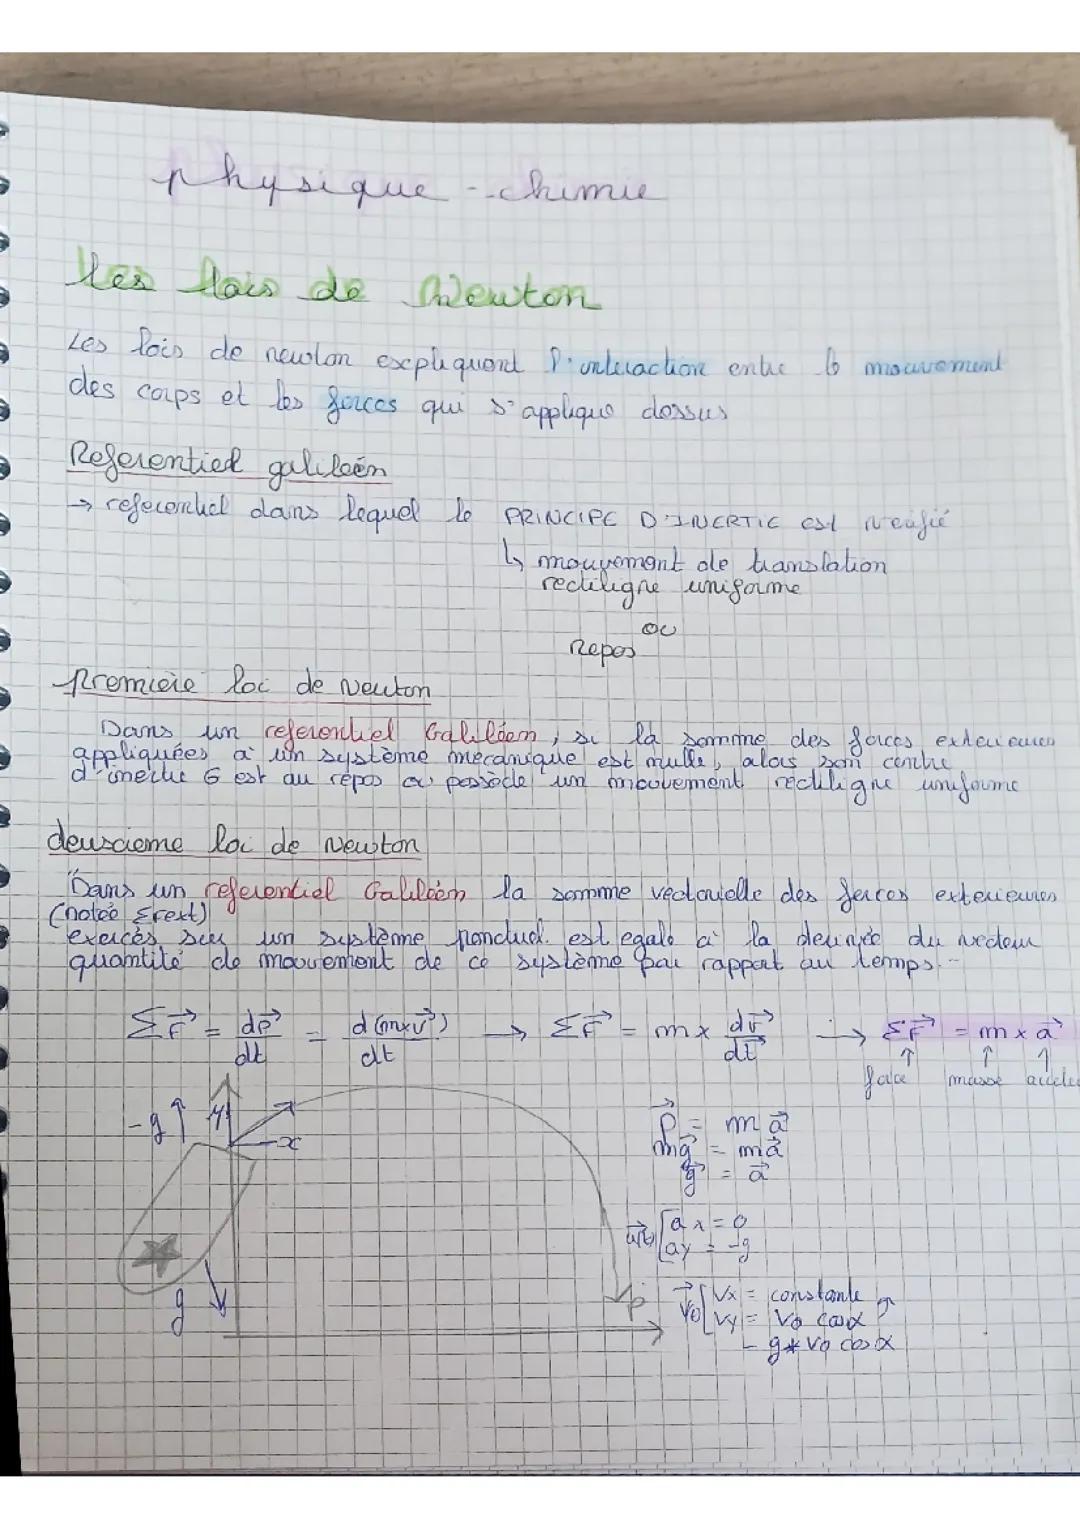 physique - chimie
Les lois de Newton
Les lois de newton expliquent l'interaction entre le mouvement
des corps et les forces qui s'applique dessus
Referentiel galiléen
→ referentiel dans lequel le PRINCIPE D'INERTIE est verifié
↳ mouvement de translation
rectiligne uniforme
ou
repos
Premiere loi de Newton
Dans un referentiel Galiléen, si la somme des forces exterieures
appliquées à un système mecanique est nulle, alors son centre
d'inertie G est au repos ou possède un mouvement rectiligne uniforme
deuxieme loi de Newton
"Dans un referentiel Galiléen la somme vectorielle des forces exterieures
(notée ΣFext)
exercés sur un système ponctuel est egale à la derivée du vecteur
quantité de mouvement de ce système par rapport au temps.-
ΣF⃗ = dp⃗/dt = d(m×v⃗)/dt → ΣF⃗ = m × dv⃗/dt → ΣF⃗ = m × a⃗
force masse accele
-g y x
P⃗ = m a⃗
mg⃗ = ma⃗
g⃗ = a⃗
a⃗(t) [ax = 0
ay = -g
g P
V⃗0 [Vx = constante
Vy = V0 cosα
- g * V0 cosα